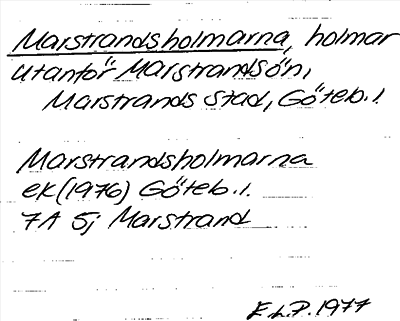 Marstrandsholmarna, holmar
utanför Marstrandsön,
Marstrands stad, Göteb. l.
Marstrandsholmarna
ek (1976) Göteb. l.
7A 5j Marstrand
E.L.P. 1977